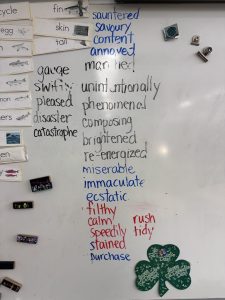 cycle
fin
sauntered
egg
skin
savoury
tail
content
annoyed
gauge
marvelled
swiftly
unintentionally
pleased
phenomenal
disaster
composing
catastrophe
brightened
re-energized
miserable
immaculate
ecstatic
filthy
calm rush
speedily tidy
stained
purchase